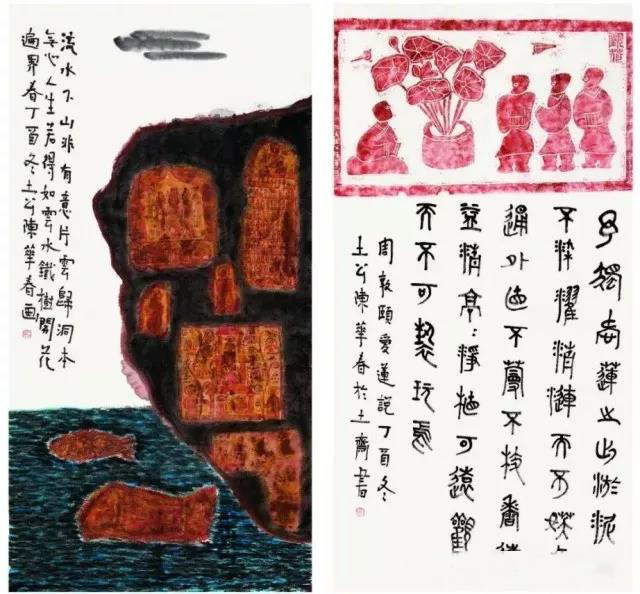 流水下山非有意片雲歸洞本
无心人生若得如雲水鐵樹開花
遍界春丁酉冬土公陳華春画
予獨愛蓮之出淤泥
不染濯清漣而不妖中
通外直不蔓不枝香遠
益清亭:淨植可遠觀
而不可褻玩焉
周敦頤愛蓮説丁酉冬
土公陳華春於土齋書